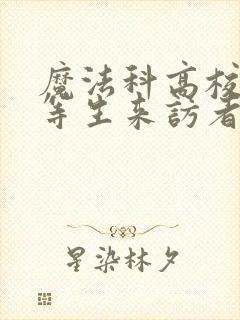 魔法科高校
等生来訪者
星染林夕